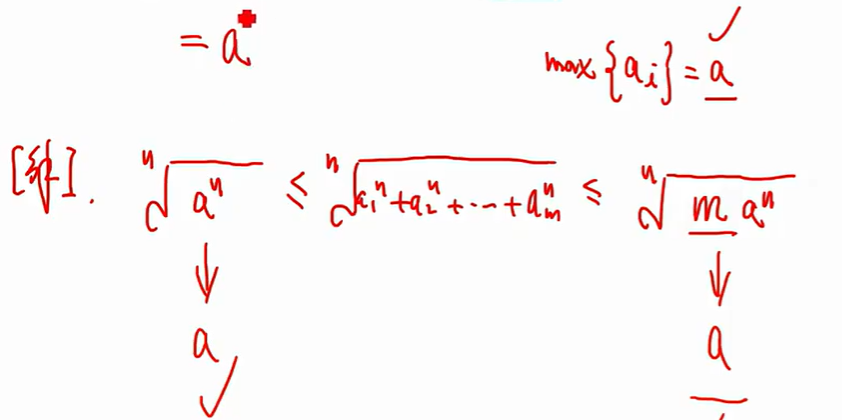 = a
max{a_i} = a
[解]. ⁿ√(aⁿ) ≤ ⁿ√(a₁ⁿ+a₂ⁿ+⋯+aₘⁿ) ≤ ⁿ√(m aⁿ)
↓ ↓
a a